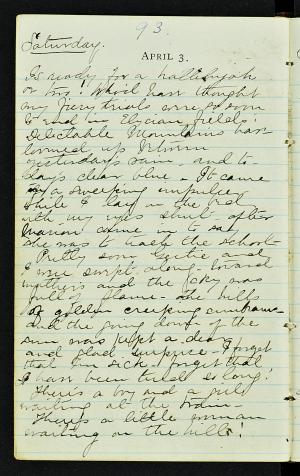 93.
Saturday.
APRIL 3.
Is ready for a hallelujah
or two! Who'd have thought
my fiery trials were so soon
to end in Elysian fields!
Delectable Mountains have
loomed up
yesterdays rain - and to-
days clear blue - It came
in a sweeping impulse
while I lay on the bed
with my eyes shut - after
Marion came in to say
she was to teach the school -
Pretty soon Gertie and
I were swept along toward
mothers and the sky was
full of flame - the hills
of golden creeping
and the going down of the
sun was just a dear
and glad surprise - I forget
that I'm sick - forget that
I have been tired so long!
There's a boy and a girl
waiting at the
There's a little woman
waiting on the hills!